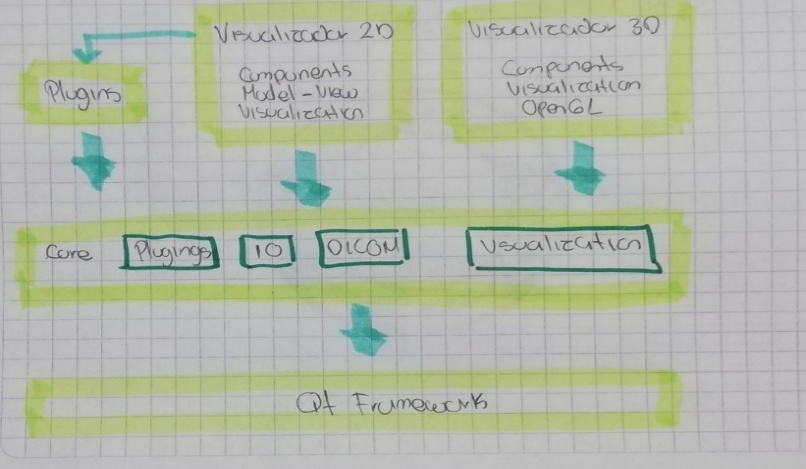 Visualizador 2D
Components
Model-View
Visualization
Visualizador 3D
Components
Visualization
OpenGL
Plugins
Core
Plugings
IO
DICOM
Visualization
Qt Framework